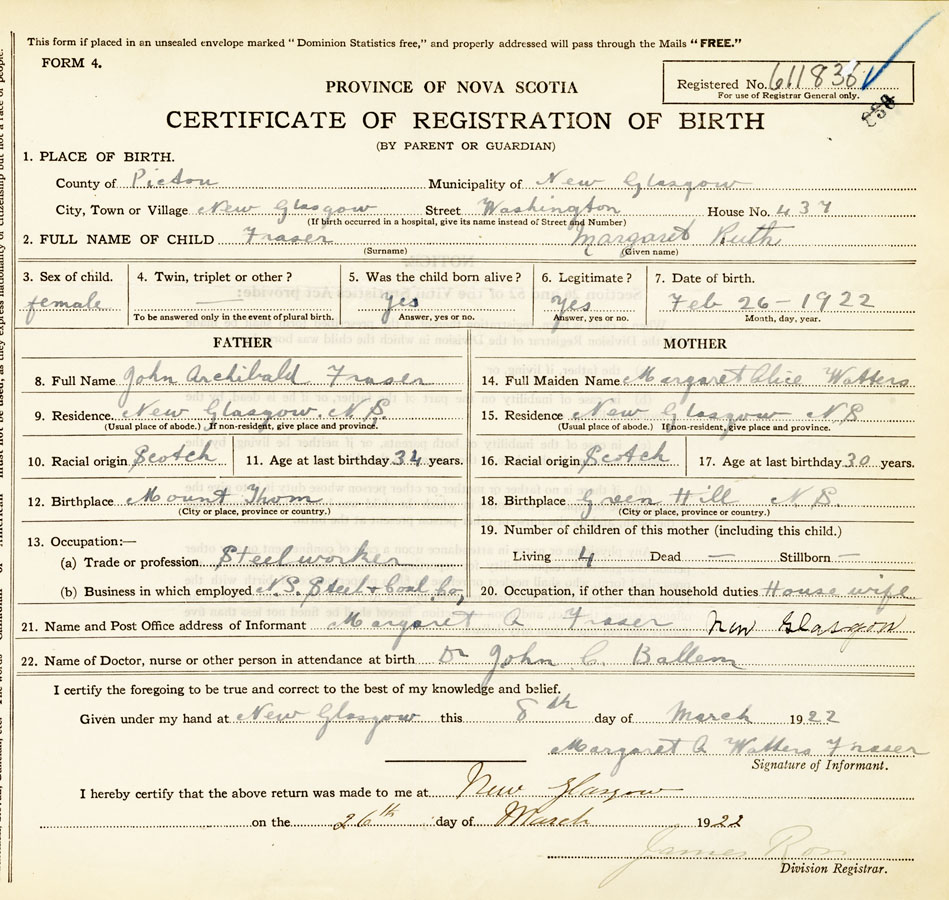 This form if placed in an unsealed envelope marked "Dominion Statistics free," and properly addressed will pass through the Mails "FREE."
FORM 4.
Registered No. 611836
For use of Registrar General only.
PROVINCE OF NOVA SCOTIA
CERTIFICATE OF REGISTRATION OF BIRTH
(BY PARENT OR GUARDIAN)
1. PLACE OF BIRTH.
County of Pictou Municipality of New Glasgow
City, Town or Village New Glasgow Street Washington House No. 437
(If birth occurred in a hospital, give its name instead of Street and Number)
2. FULL NAME OF CHILD Fraser Margaret Ruth
(Surname) (Given name)
3. Sex of child. 4. Twin, triplet or other? 5. Was the child born alive? 6. Legitimate? 7. Date of birth.
female — yes yes Feb 26 - 1922
To be answered only in the event of plural birth. Answer, yes or no. Answer, yes or no. Month, day, year.
FATHER MOTHER
8. Full Name John Archibald Fraser 14. Full Maiden Name Margaret Alice Watters
9. Residence. New Glasgow. N.S. 15. Residence New Glasgow N S
(Usual place of abode.) If non-resident, give place and province. (Usual place of abode.) If non-resident, give place and province.
10. Racial origin Scotch 11. Age at last birthday 34 years. 16. Racial origin Scotch 17. Age at last birthday 30 years.
12. Birthplace Mount Thom 18. Birthplace Green Hill N.S.
(City or place, province or country.) (City or place, province or country.)
19. Number of children of this mother (including this child.)
13. Occupation:—
(a) Trade or profession Steelworker Living 4 Dead — Stillborn —
(b) Business in which employed N.S. Steel + Coal Co, 20. Occupation, if other than household duties House wife
21. Name and Post Office address of Informant Margaret A Fraser New Glasgow
22. Name of Doctor, nurse or other person in attendance at birth Dr John C. Ballem
I certify the foregoing to be true and correct to the best of my knowledge and belief.
Given under my hand at New Glasgow this 8th day of March 1922
Margaret A Watters Fraser
Signature of Informant.
I hereby certify that the above return was made to me at New Glasgow
on the 26th day of March 1922
James Ross
Division Registrar.